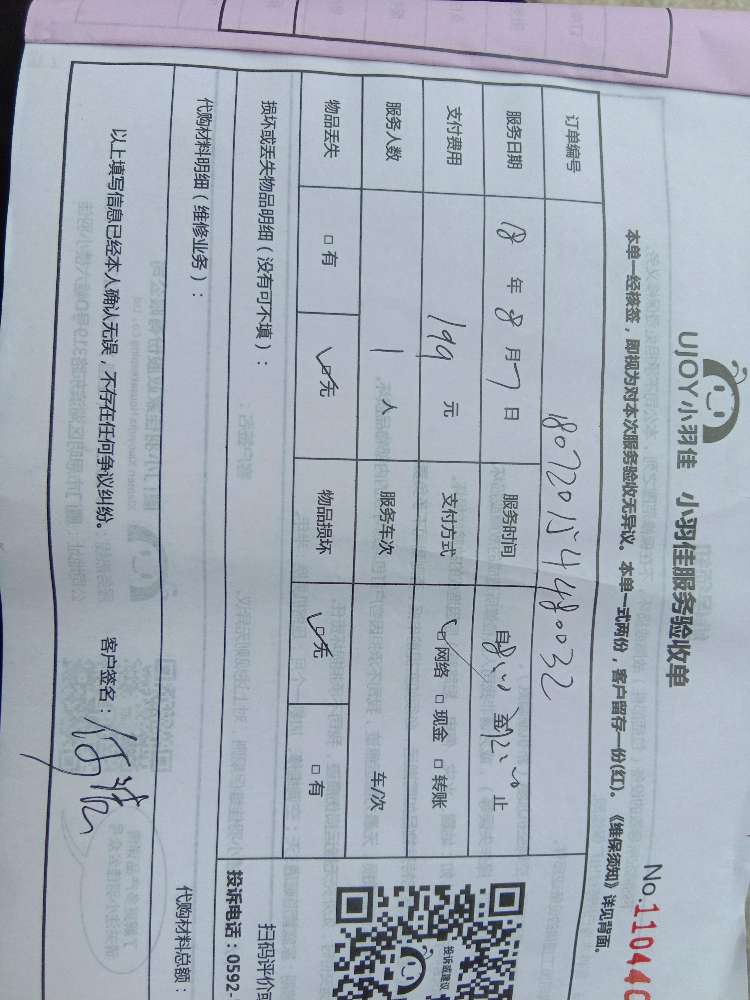 UJOY小羽佳 小羽佳服务验收单
No.110440
本单一经核签，即视为对本次服务验收无异议。本单一式两份，客户留存一份(红)。《维保须知》详见背面。
订单编号 180720154480032
服务日期 18 年 8 月 7 日 服务时间 自8:00 至12:00 止
支付费用 199 元 支付方式 ☑网络 □现金 □转账
服务人数 1 人 服务车次 车/次
物品丢失 □有 ☑无 物品损坏 ☑无 □有
损坏或丢失物品明细（没有可不填）：
扫码评价或
投诉电话：0592-
投诉或建议
代购材料明细（维修业务）：
代购材料总额：
以上填写信息已经本人确认无误，不存在任何争议纠纷。 客户签名：